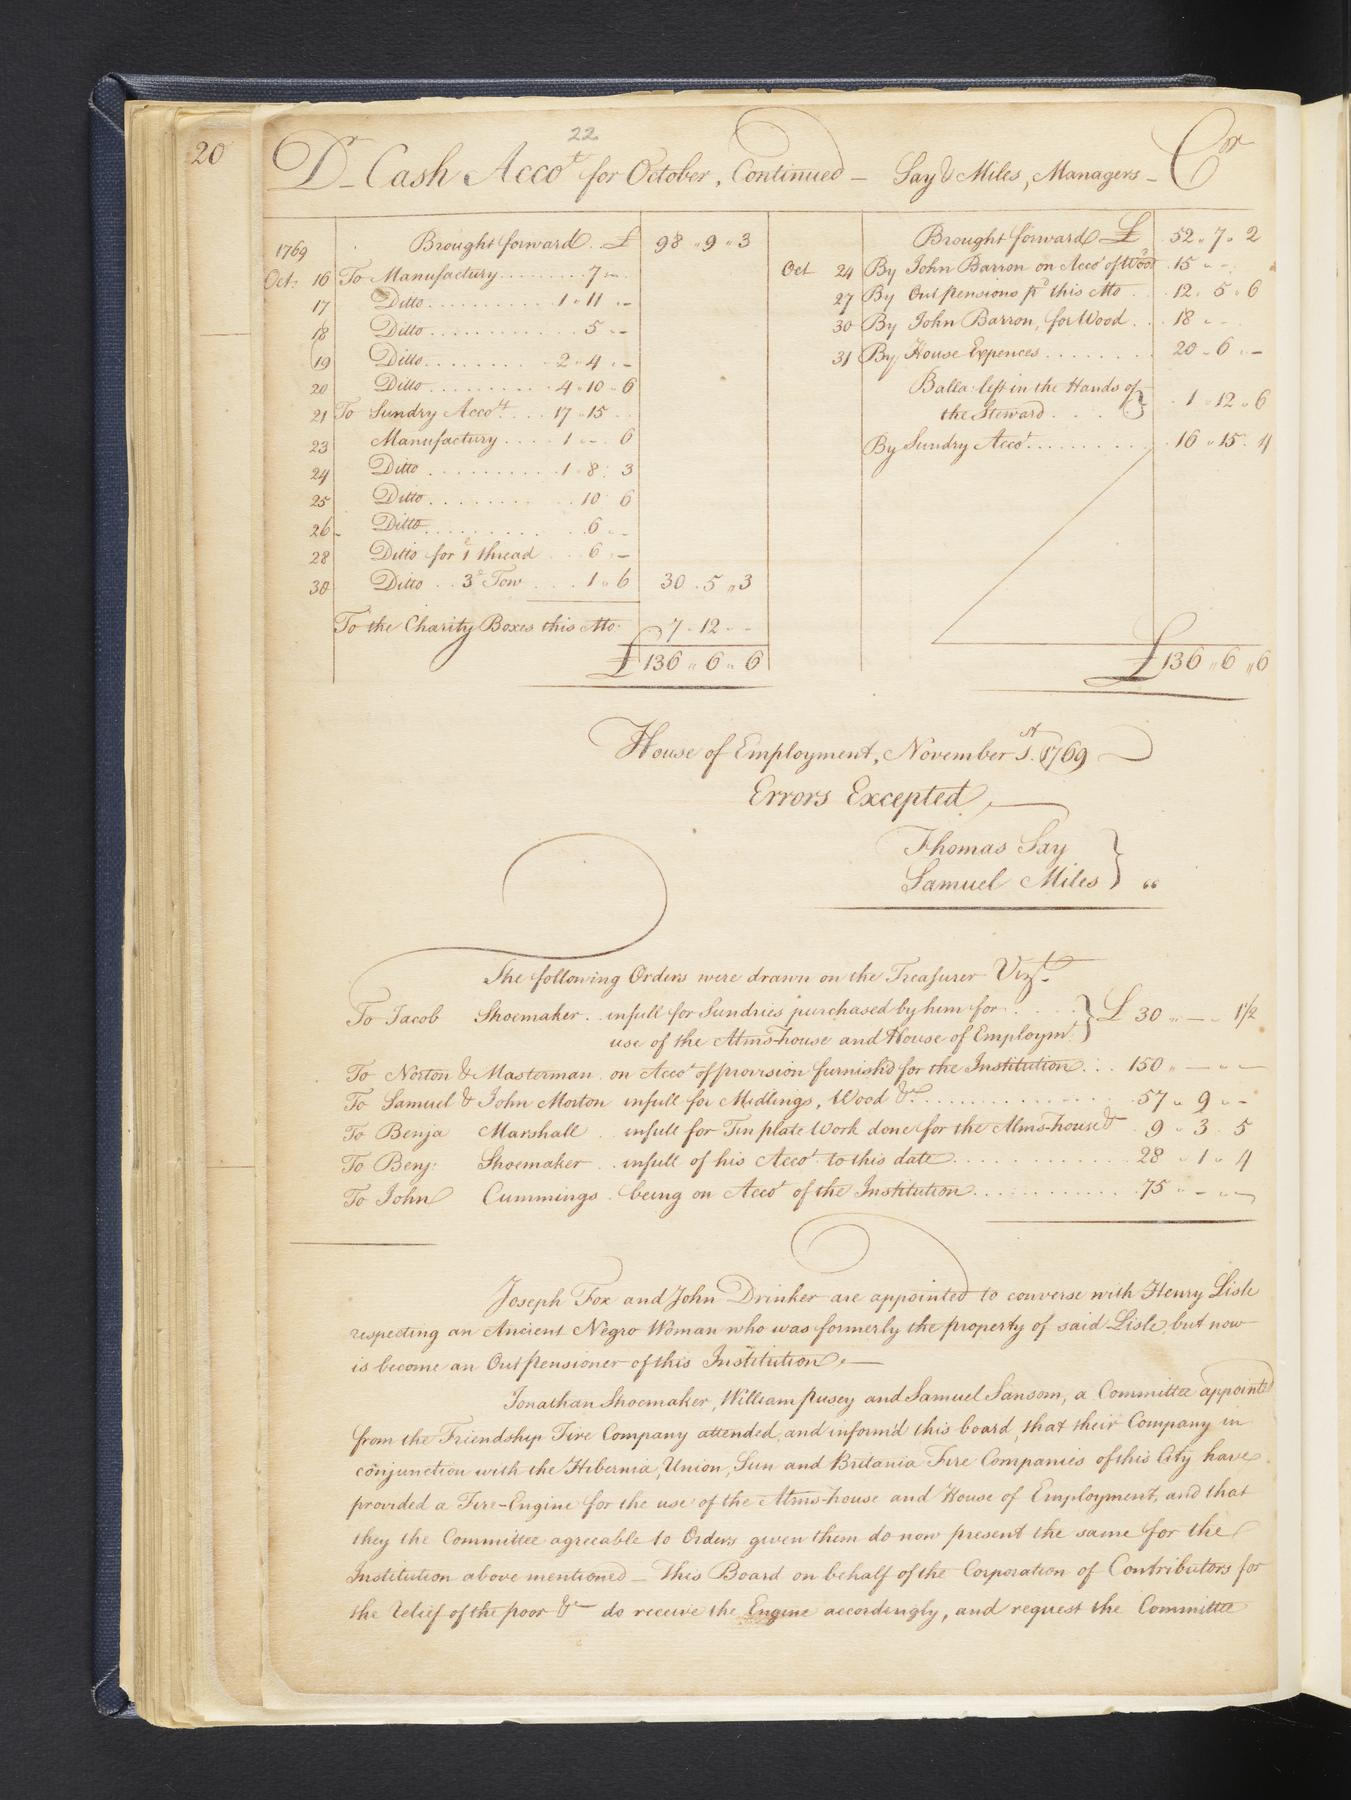 20
22
Dr Cash Accot for October, Continued — Say & Miles, Managers — Cr
1769 Brought forward £ 98 „ 9 „ 3
Oct: 16 To Manufactury ......... 7 „ –
17 Ditto .......... 1 „ 11 „ –
18 Ditto .......... 5 „ –
19 Ditto .......... 2 „ 4 „ –
20 Ditto .......... 4 „ 10 „ 6
21 To Sundry Accots ... 17 „ 15
23 Manufactury .... 1 „ – „ 6
24 Ditto .......... 1 „ 8 „ 3
25 Ditto .......... 10 „ 6
26 Ditto .......... 6 „ –
28 Ditto for 1 thread ... 6 „ –
30 Ditto .. 3 Tow .... 1 „ 6 30 „ 5 „ 3
To the Charity Boxes this Mo. 7 „ 12 „ –
£ 136 „ 6 „ 6
Brought forward £ 52 „ 7 „ 2
Oct 24 By John Barron on Acco of Wood 15 „ –
27 By Out pensions pd this Mo .. 12 „ 5 „ 6
30 By John Barron, for Wood ... 18 „ –
31 By House Expences ........ 20 „ 6 „ –
Balla: left in the Hands of
the Steward .... } 1 „ 12 „ 6
By Sundry Accot .......... 16 „ 15 „ 4
£ 136 „ 6 „ 6
House of Employment, November 1st. 1769
Errors Excepted,
Thomas Say
Samuel Miles } „
The following Orders were drawn on the Treasurer Vizt.
To Jacob Shoemaker .. infull for Sundries purchased by him for ....
use of the Alms-house and House of Employmt. } £ 30 „ — „ 1½
To Norton & Masterman on Acco of provision furnish'd for the Institution ... 150 „ — „ —
To Samuel & John Morton infull for Midlings, Wood &c. .......... 57 „ 9 „ –
To Benja Marshall .. infull for Tin plate Work done for the Alms-house & . 9 „ 3 „ 5
To Benj: Shoemaker .. infull of his Accot. to this date .......... 28 „ 1 „ 4
To John Cummings . being on Accot of the Institution .......... 75 „ – „ –
Joseph Fox and John Drinker are appointed to converse with Henry Lisle
respecting an Ancient Negro Woman who was formerly the property of said Lisle, but now
is become an Out pensioner of this Institution. —
Jonathan Shoemaker, William pusey and Samuel Sansom, a Committee appointed
from the Friendship Fire Company attended, and inform'd this board, that their Company in
conjunction with the Hibernia, Union, Sun and Britania Fire Companies of this City have
provided a Fire-Engine for the use of the Alms-house and House of Employment, and that
they the Committee agreeable to Orders given them do now present the same for the
Institution above mentioned — this Board on behalf of the Corporation of Contributors for
the relief of the poor &c — do receive the Engine accordingly, and request the Committee